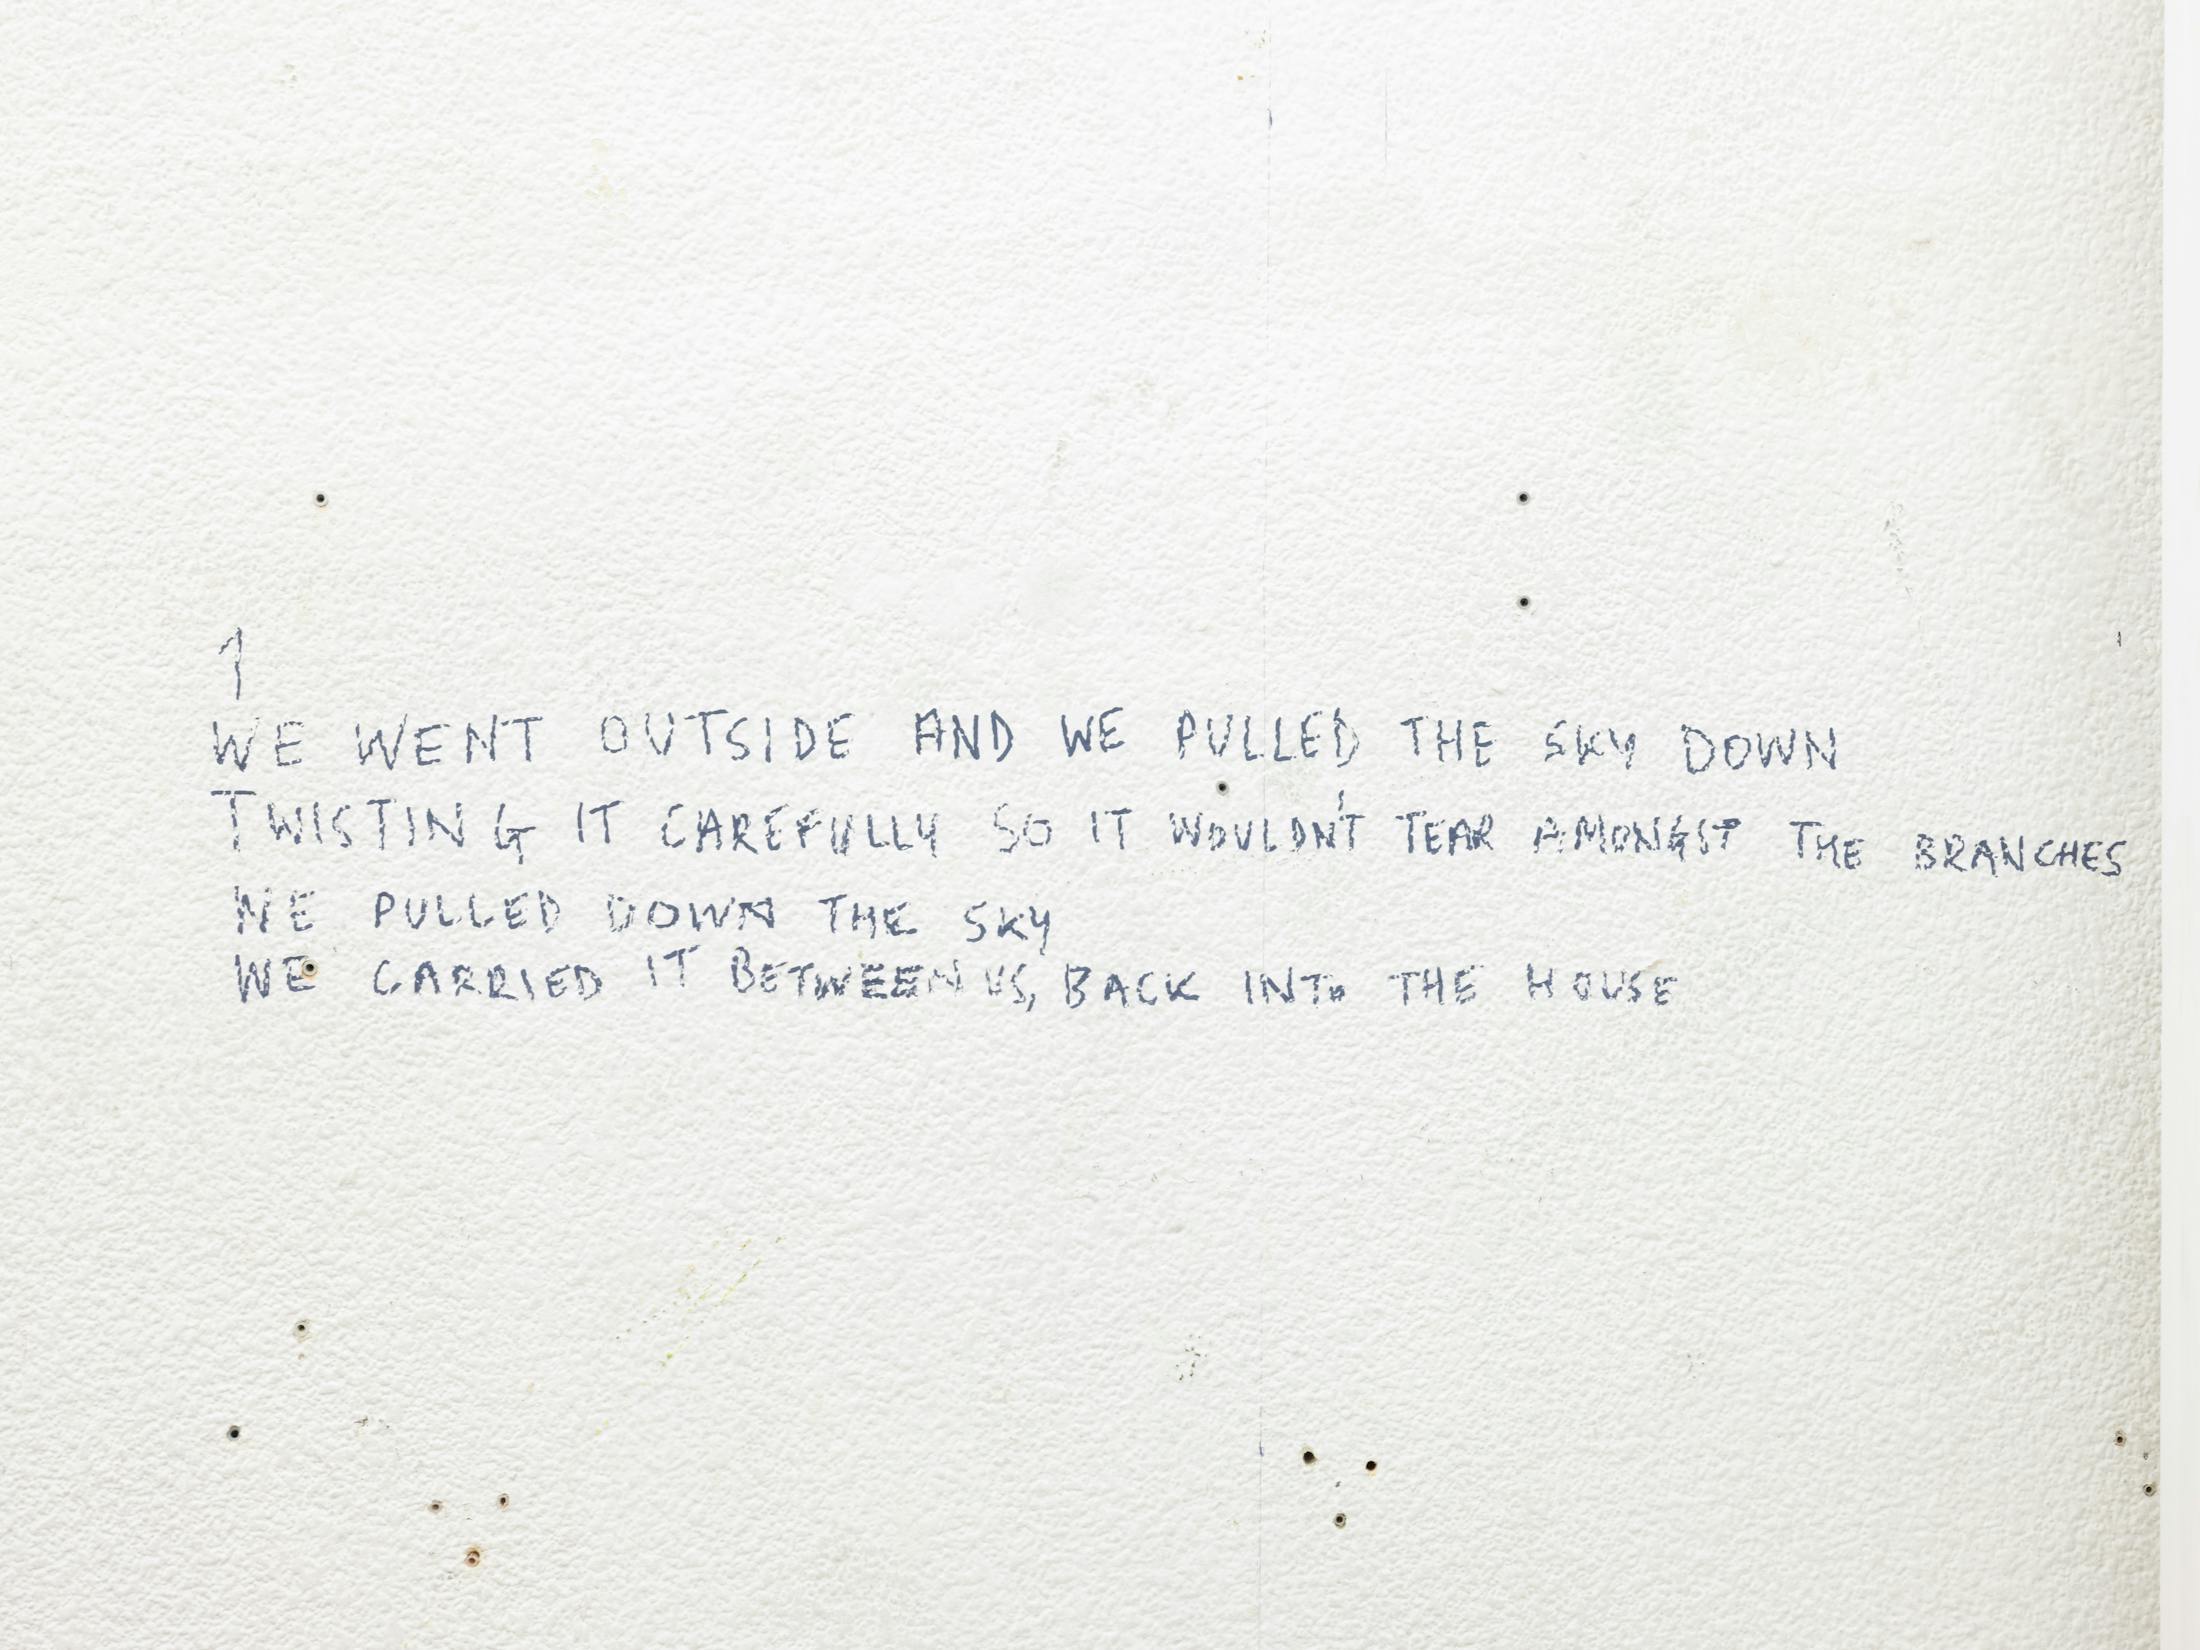 1
WE WENT OUTSIDE AND WE PULLED THE SKY DOWN
TWISTING IT CAREFULLY SO IT WOULDN'T TEAR AMONGST THE BRANCHES
WE PULLED DOWN THE SKY
WE CARRIED IT BETWEEN US, BACK INTO THE HOUSE